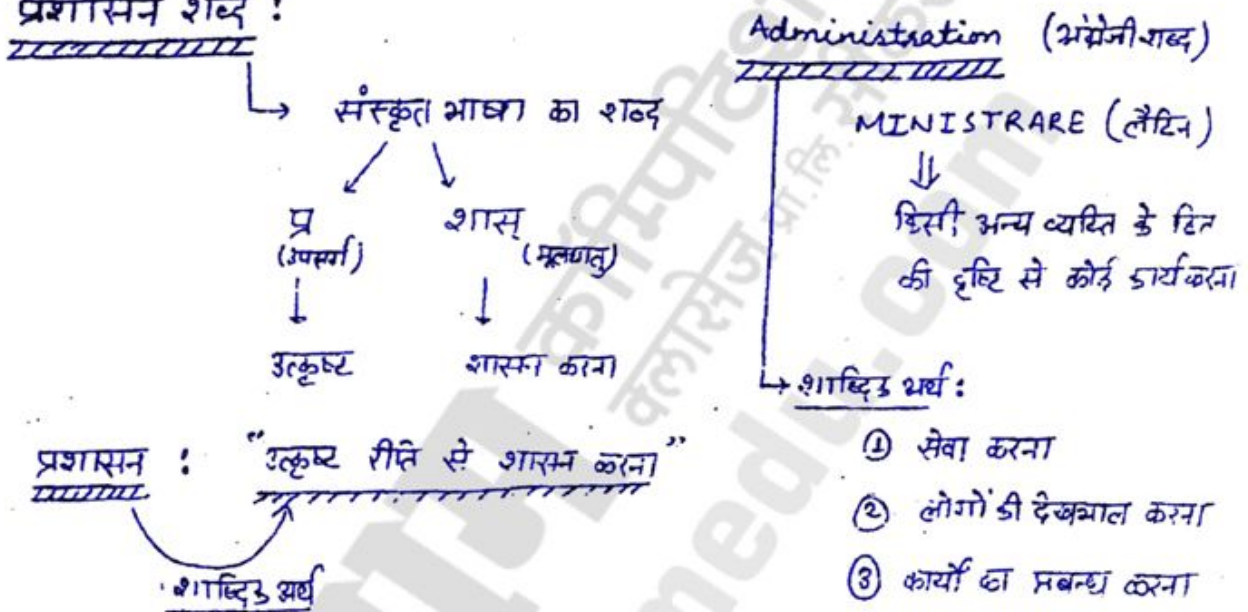 प्रशासन शब्द :
संस्कृत भाषा का शब्द
प्र शास्
(उपसर्ग) (मूलधातु)
उत्कृष्ट शासन करना
प्रशासन : "उत्कृष्ट रीति से शासन करना"
शाब्दिक अर्थ
Administration (अंग्रेजी शब्द)
MINISTRARE (लैटिन)
किसी अन्य व्यक्ति के हित
की दृष्टि से कोई कार्य करना
शाब्दिक अर्थ :
① सेवा करना
② लोगों की देखभाल करना
③ कार्यों का प्रबन्ध करना
क्लासेज प्रा. लि.